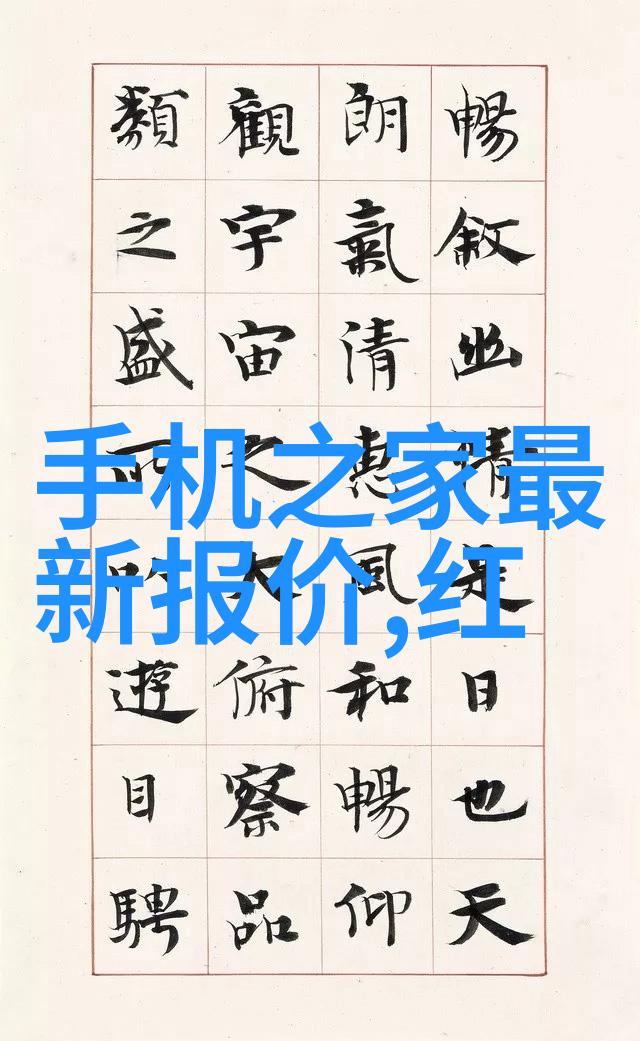 暢敘幽情是日也天
朗氣清惠風和暢仰
觀宇宙之大俯察品
類之盛所以遊目騁
手机之家最
新报价,红